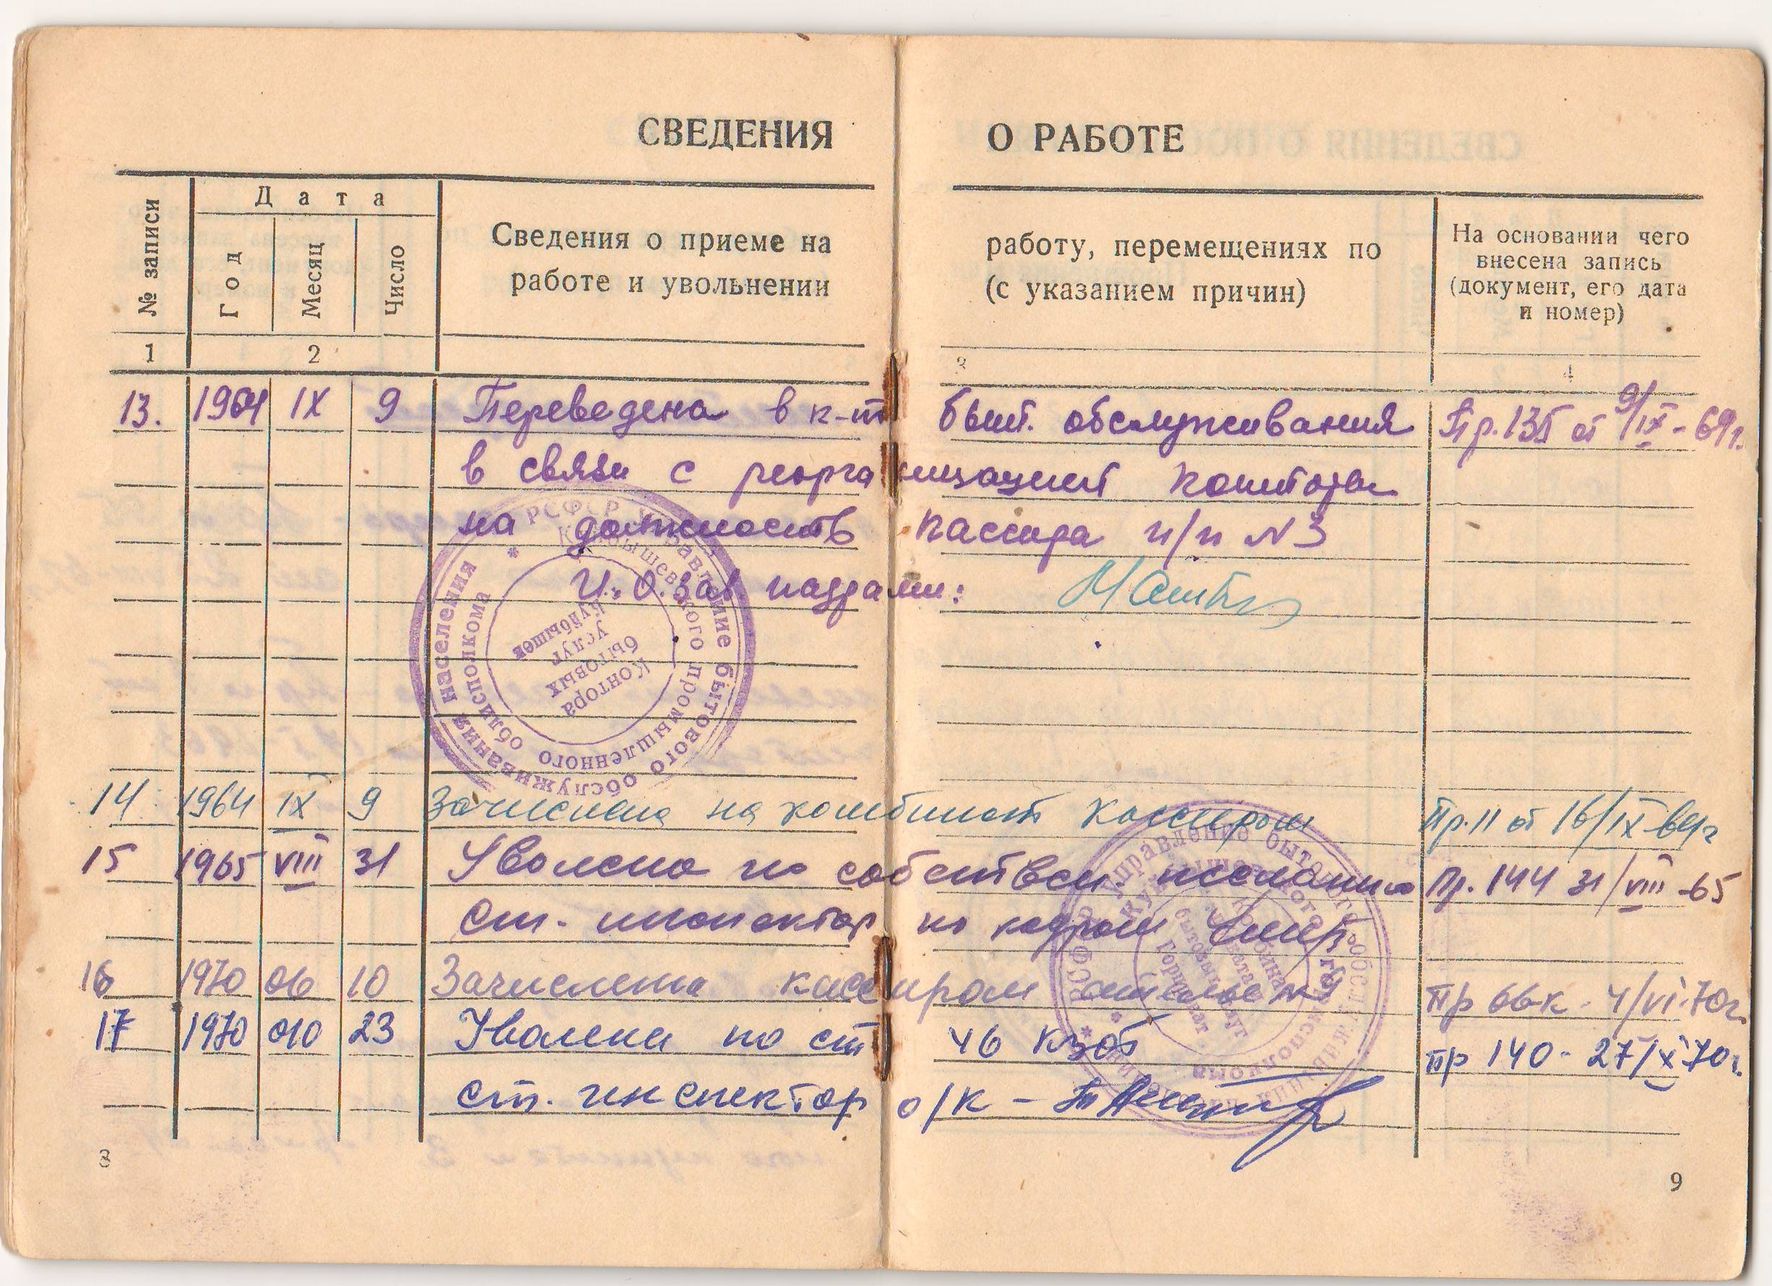 СВЕДЕНИЯ О РАБОТЕ
№ записи
Дата
Год
Месяц
Число
Сведения о приеме на работу, перемещениях по
работе и увольнении (с указанием причин)
На основании чего
внесена запись
(документ, его дата
и номер)
1 2 3 4
13. 1964 IX 9 Переведена в к-т быт. обслуживания Пр. 135 от 9/IX-64г.
в связи с реорганизацией конторы
на должность кассира п/п №3
И.О. Зав кадрами:
РСФСР Управление бытового обслуживания населения
Куйбышевского промышленного облисполкома
Контора
бытовых
услуг
Куйбышев
14. 1964 IX 9 Зачислена на комбинат кассиром Пр. 11 от 16/IX-64г
15 1965 VIII 31 Уволена по собствен желанию Пр. 144 31/VIII-65
ст. инспектор по кадрам
16 1970 06 10 Зачислена кассиром ателье №9 Пр 66к - 4/VI-70г.
17 1970 010 23 Уволена по ст 46 КЗОТ пр 140 - 27/X-70г.
ст. инспектор о/к -
8
9